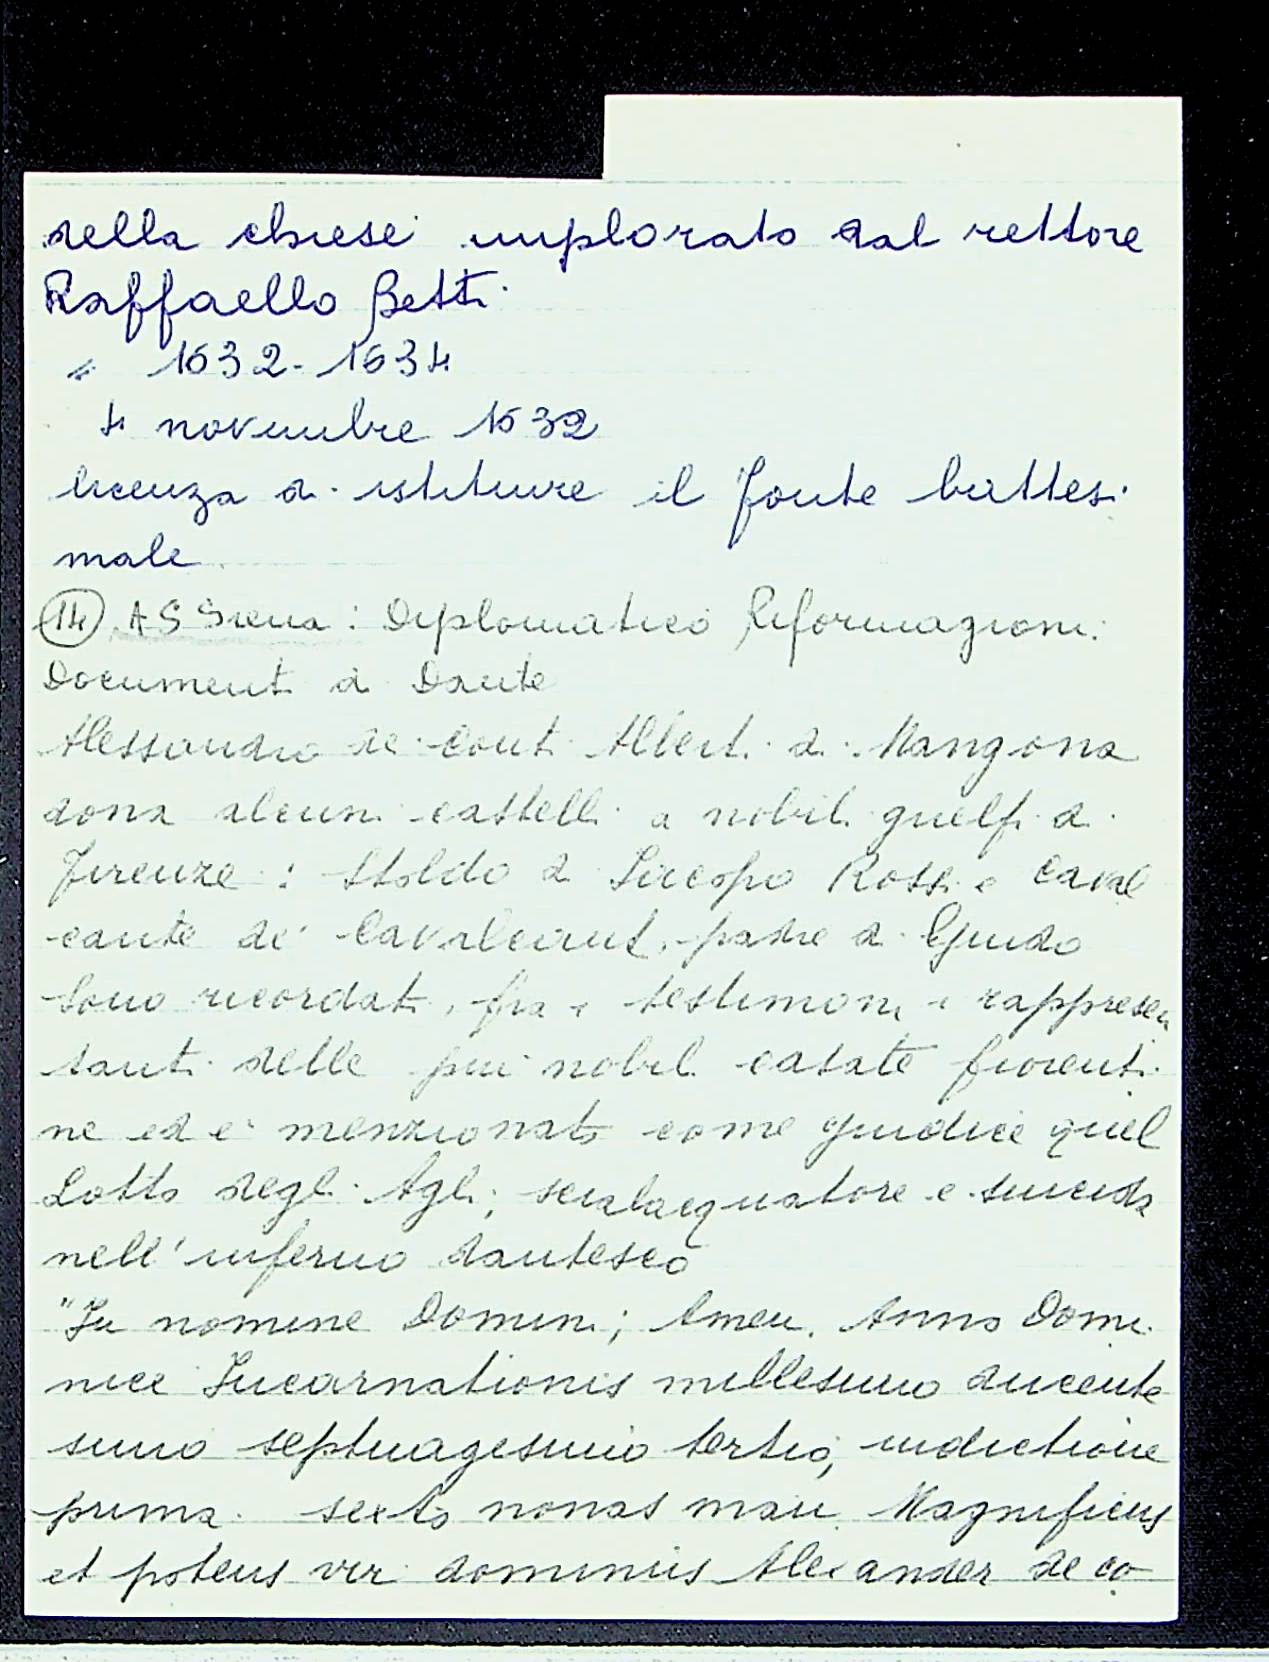 della chiesa implorato dal rettore
Raffaello Betti
" 1632-1634
4 novembre 1632
licenza di istituire il fonte battesi
male
(14) AS Siena: Diplomatico Riformagioni.
Documenti di Dante
Alessandro de' Conti Alberti di Mangona
dona alcuni castelli a nobili guelfi di
Firenze: Stoldo di Iacopo Rossi e Caval
cante de' Cavalcanti, padre di Guido
Sono ricordati, fra i testimoni i rappresen
tanti delle più nobili casate fiorenti
ne ed è menzionato come giudice quel
Lotto degli Agli; scialacquatore e suicida
nell'inferno dantesco
"In nomine Domini; Amen. Anno Domi
nice Incarnationis millesimo ducente
simo septuagesimo tertio, indictione
prima. sexto nonas maii. Magnificus
et potens vir dominus Alexander de co